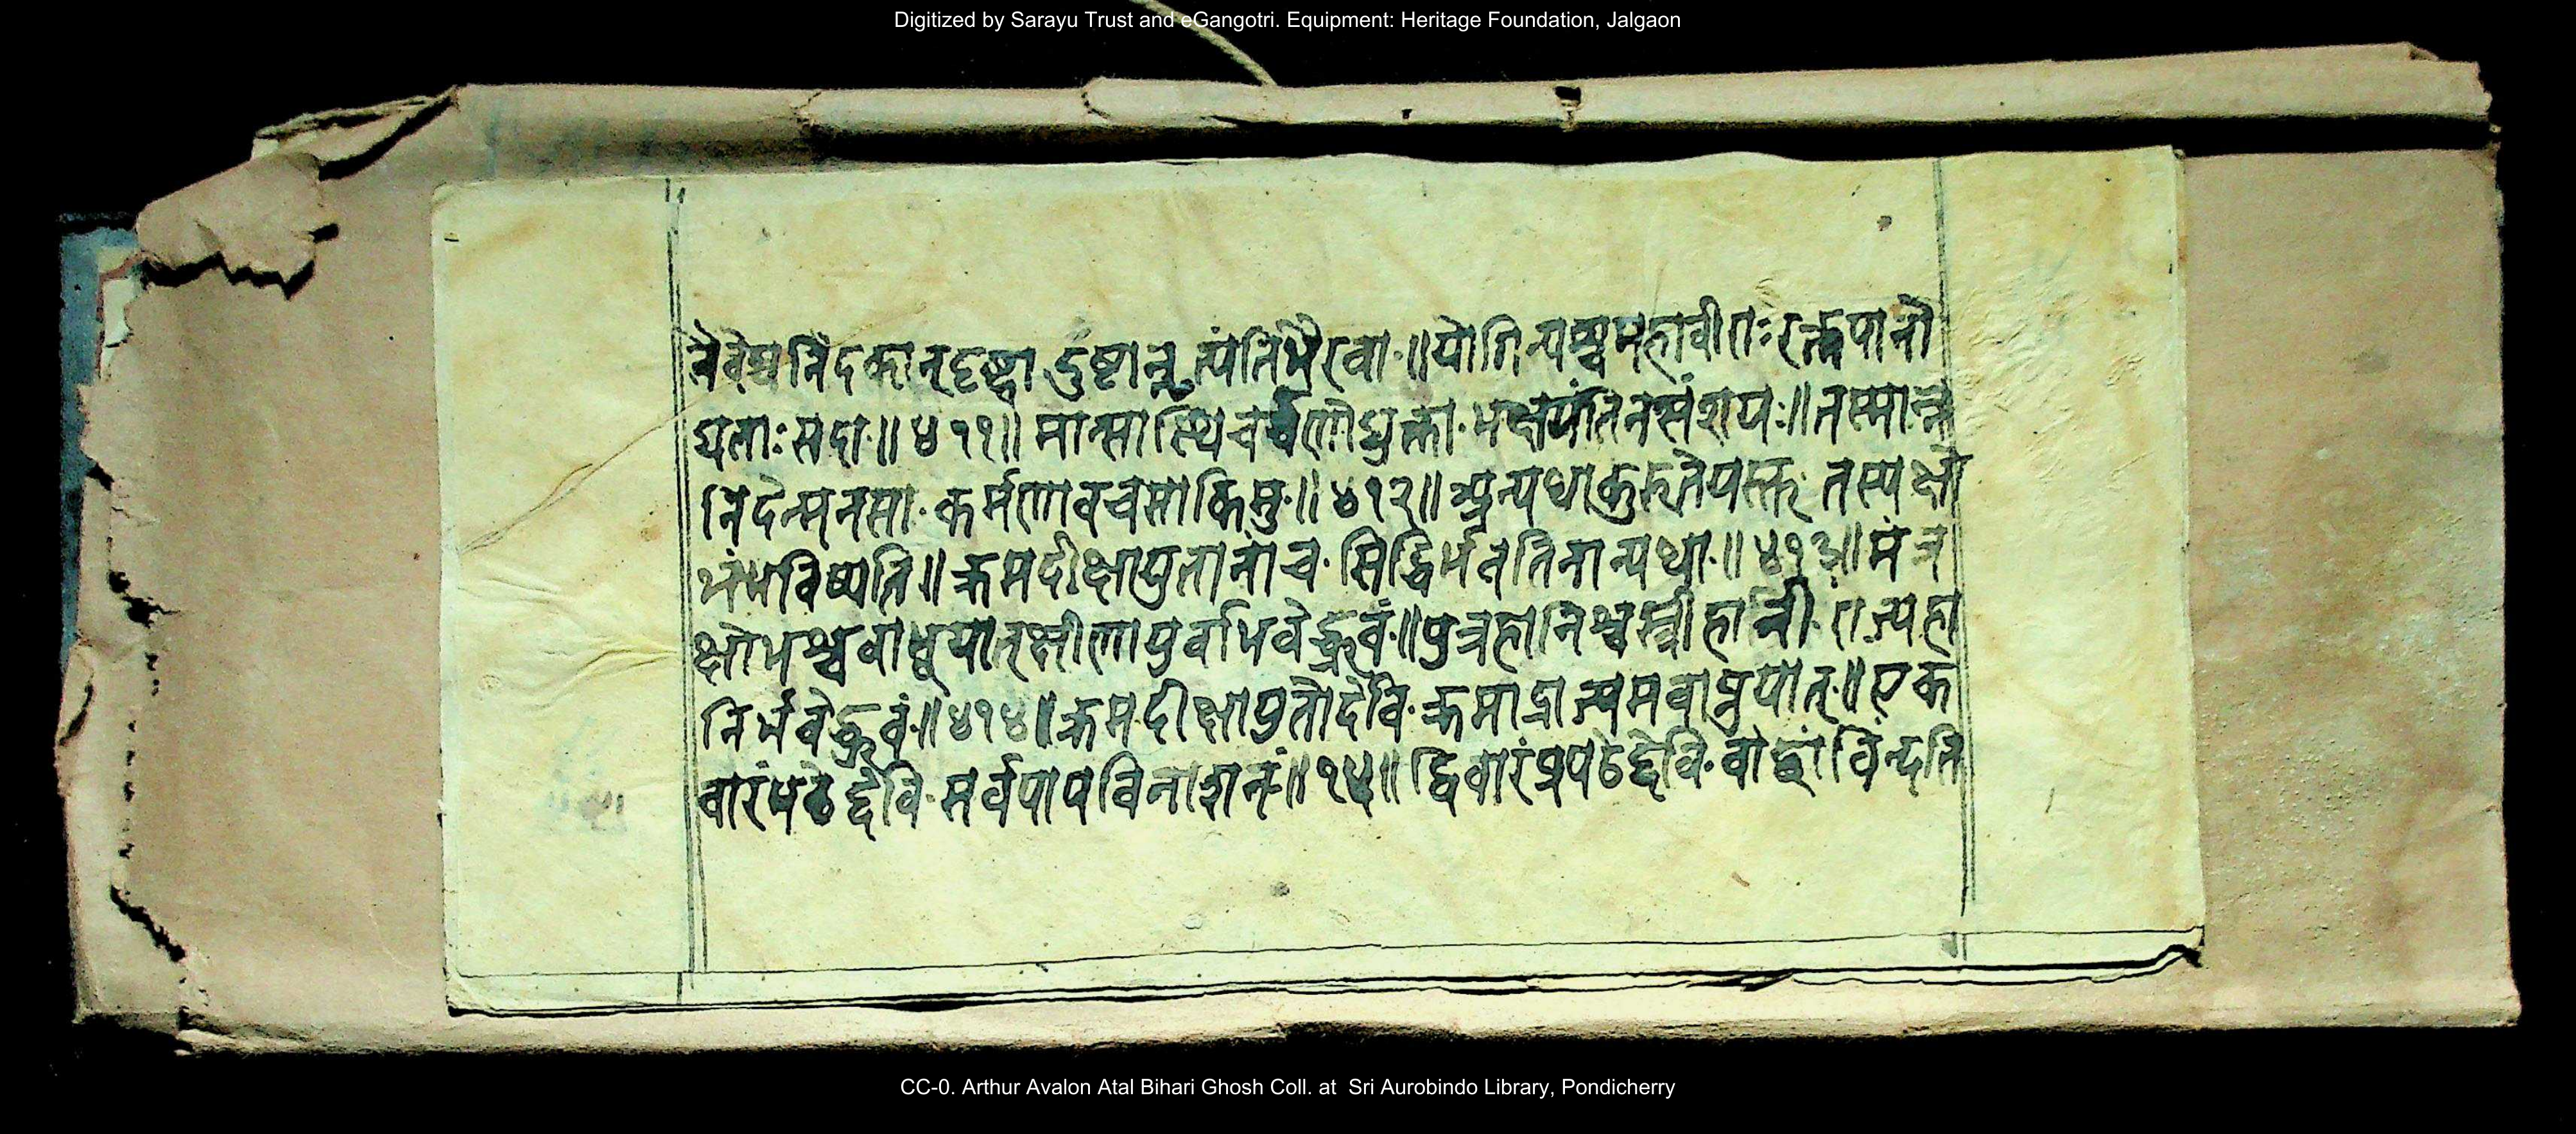 Digitized by Sarayu Trust and eGangotri. Equipment: Heritage Foundation, Jalgaon
नैवेद्यनिंदकान्दृष्ट्वा दुष्टान्नृत्यंतिभैरवा·॥योगिन्यश्चमहावीराःरक्तपानो
द्यताःसदा·॥४११॥ मान्सास्थिचर्व्वणोद्युक्ता·भक्षयंतिनसंशयः॥तस्मान्न
निंदेन्मनसा·कर्मणावचसाकिमु·॥४१२॥ अन्यथाकुरुतेयस्तु· तस्यक्षो
भंभविष्यति॥क्रमदीक्षायुतानांच·सिद्धिर्भवतिनान्यथा·॥४१३॥मंत्र
क्षोभश्चवाभूयात्क्षीणायुर्वाभवेद्ध्रुवं·॥पुत्रहानिश्चस्त्रीहानी·राज्यहा
निर्भवेद्ध्रुवं·॥४१४॥क्रमदीक्षायुतोदेवि·क्रमाद्राज्यमवाप्नुयात्·॥एक
वारंपठेद्देवि·सर्वपापविनाशनं·॥१५॥ द्विवारंप्रपठेद्देवि· विन्दति
CC-0. Arthur Avalon Atal Bihari Ghosh Coll. at Sri Aurobindo Library, Pondicherry